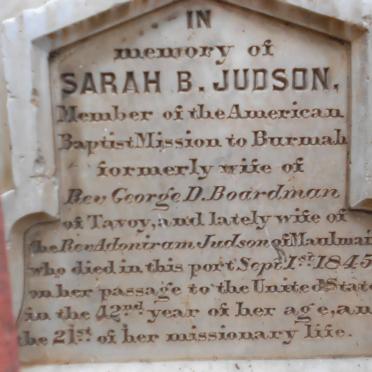 IN
memory of
SARAH B. JUDSON,
Member of the American
Baptist Mission to Burmah
formerly wife of
Rev George D. Boardman
of Tavoy, and lately wife of
the Rev Adoniram Judson of Maulmai
who died in this port Sept 1st 1845
on her passage to the United State
in the 42nd year of her age, an
the 21st of her missionary life.